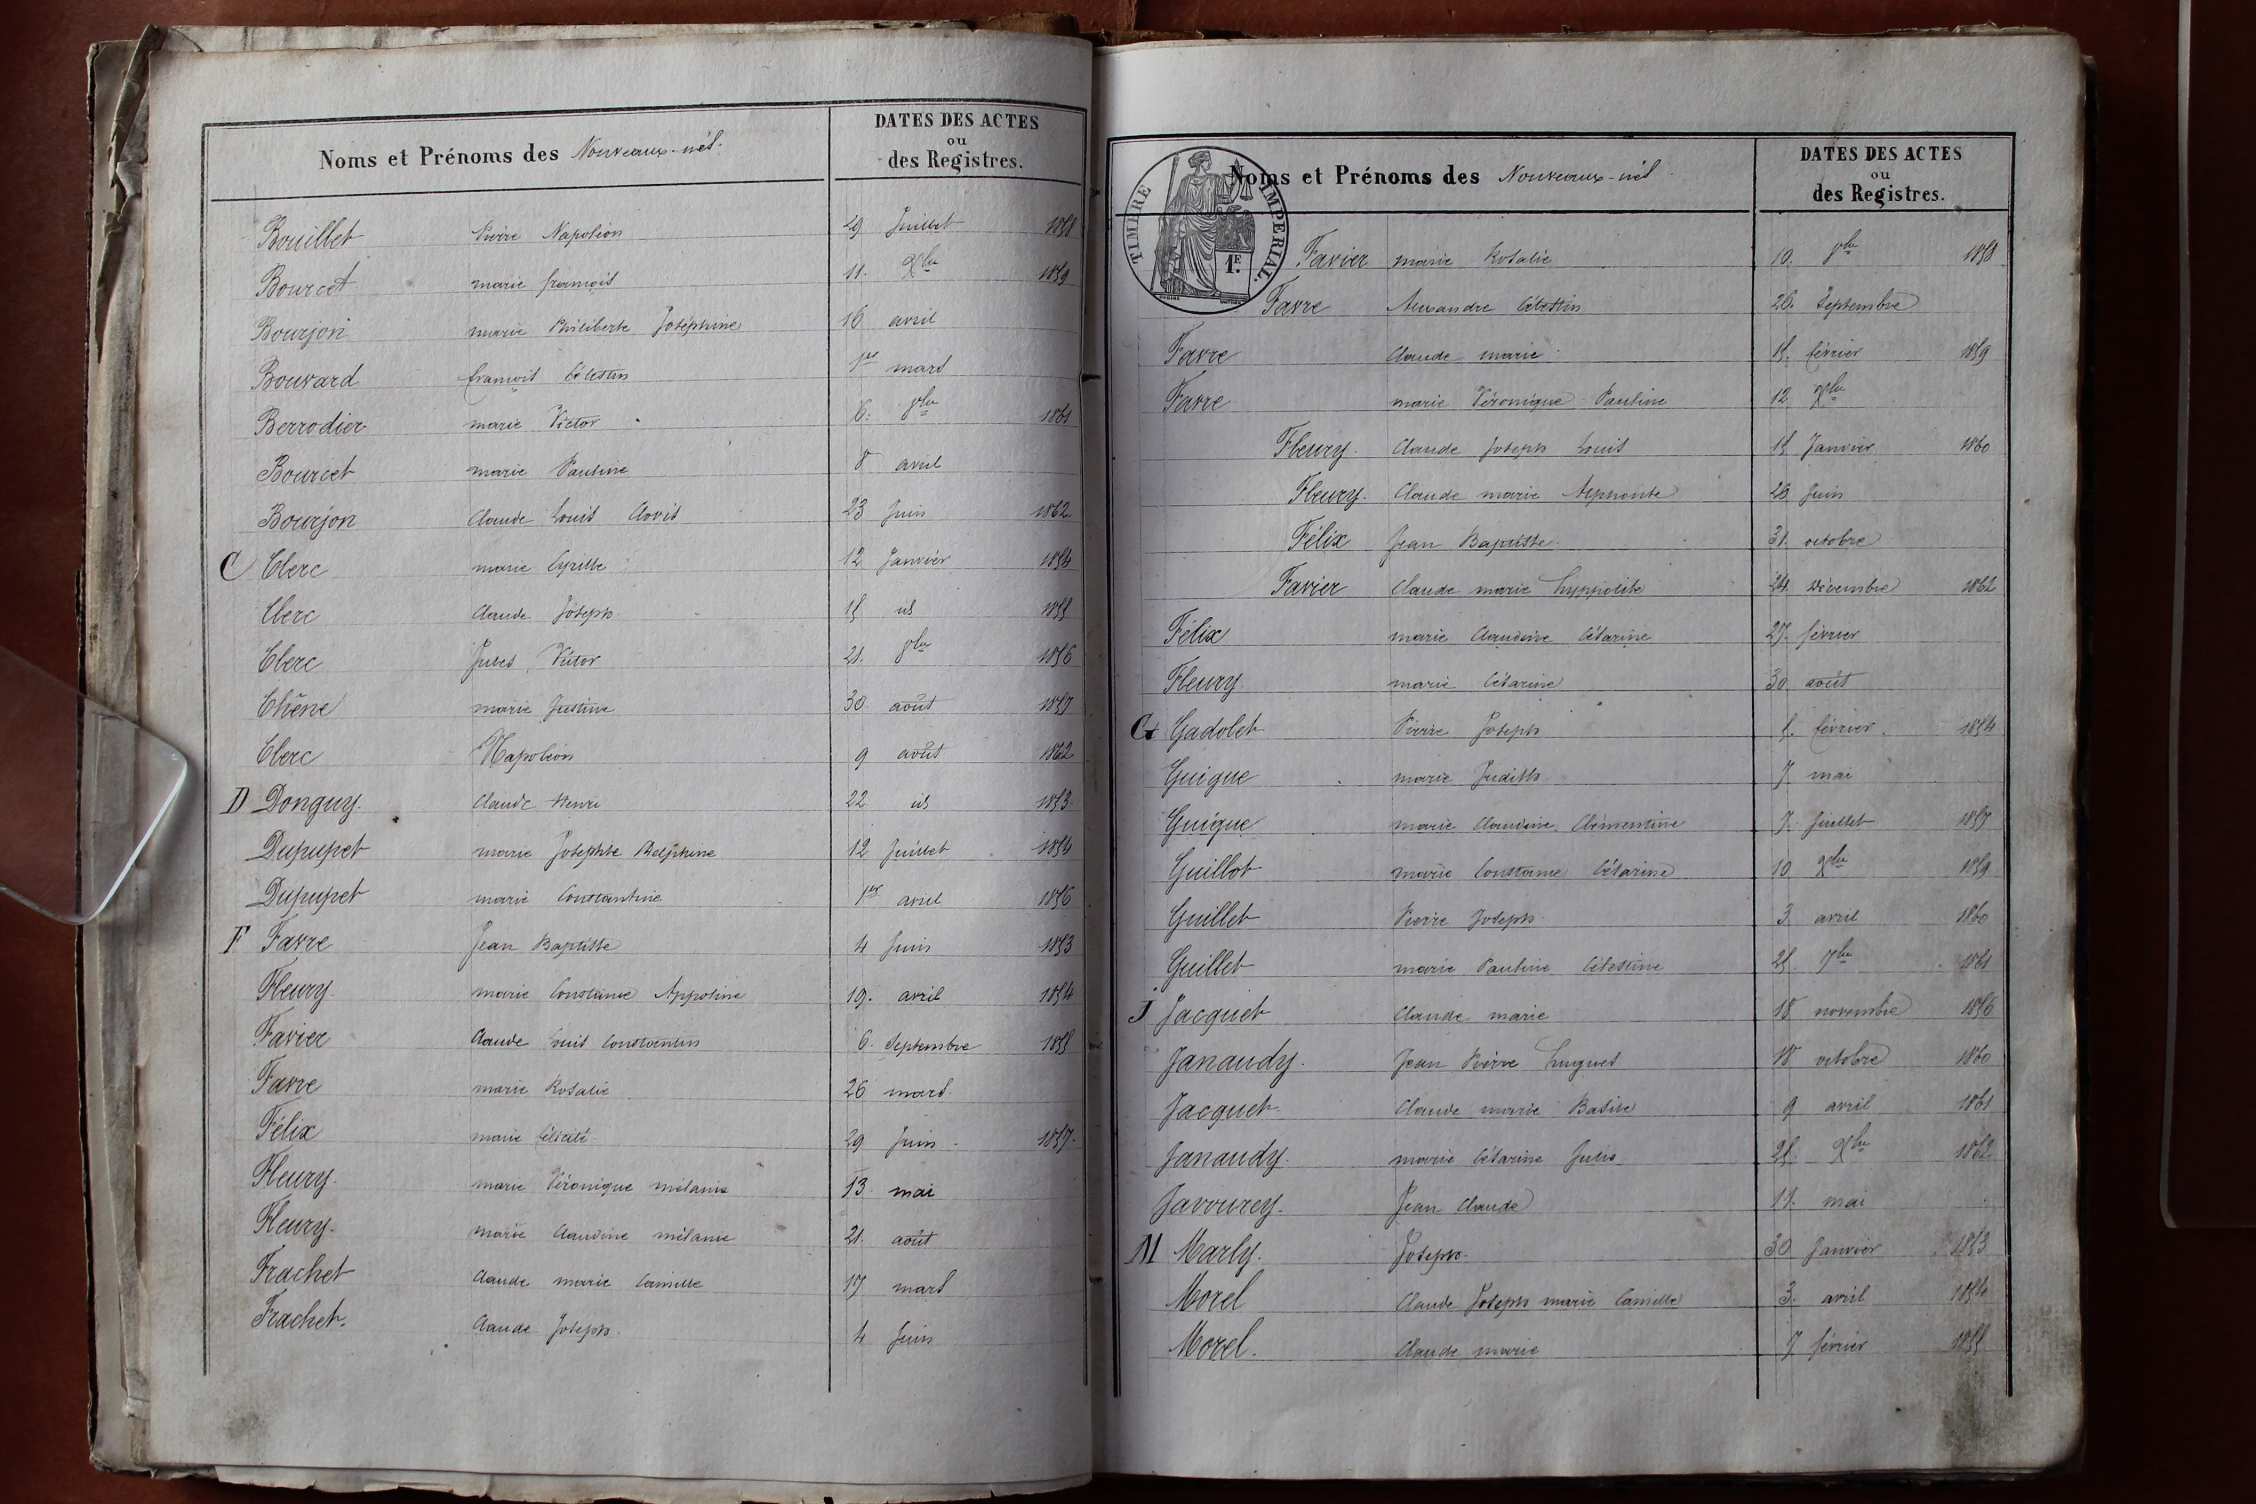 Noms et Prénoms des Nouveaux-nés.
DATES DES ACTES
ou
des Registres.
Bouillet Pierre Napoléon 29 Juillet 1858
Bourcet marie françois 11. Xbre 1859
Bourjon marie Philiberte Joséphine 16 avril
Bouvard françois Célestin 1er mars
Berrodier marie Victor 6. 8bre 1861
Bourcet marie Pauline 8 avril
Bourjon Claude Louis Clovis 23 Juin 1862
C Clerc marie Cyrille 12 Janvier 1854
Clerc Claude Joseph 15 id 1855
Clerc Jules Victor 21. 8bre 1856
Chêne marie Justine 30. août 1857
Clerc Napoléon 9 août 1862
D Donguy. Claude Henri 22 id 1853
Dupupet marie Josephte Delphine 12 Juillet 1854
Dupupet marie Constantine 1er avril 1856
F Favre Jean Baptiste 4 Juin 1853
Fleury. marie Constance Appoline 19. avril 1854
Favier Claude Louis Constantin 6. Septembre 1855
Favre marie Rosalie 26 mars.
Félix marie félicité 29 Juin 1857.
Fleury. marie Véronique mélanie 13. mai
Fleury. marie Claudine mélanie 21. août
Frachet Claude marie Camille 17 mars
Frachet. Claude Joseph. 4 Juin
TIMBRE IMPERIAL.
1.E
Noms et Prénoms des Nouveaux-nés
DATES DES ACTES
ou
des Registres.
Favier marie Rosalie 10. 8bre 1858
Favre Alexandre Célestin 26. Septembre
Favre Claude marie 15. février 1859
Favre marie Véronique Pauline 12. Xbre
Fleury. Claude Joseph Louis 15 Janvier 1860
Fleury. Claude marie Alphonse 26 Juin
Félix Jean Baptiste. 31. octobre
Favier Claude marie hyppolite 24. décembre 1862
Félix marie Claudine Césarine 27. février
Fleury marie Césarine 30 août
G Gadolet Pierre Joseph 5. février. 1854
Guigue marie Judith 7 mai
Guigue marie Claudine Clémentine 7. Juillet 1857
Guillot marie Constance Césarine 10 Xbre 1859
Guillet Pierre Joseph 3. avril 1860
Guillet marie Pauline Célestine 25. 7bre 1861
J Jacquet Claude marie 18 novembre 1856
Janaudy. Jean Pierre hugues 18 octobre 1860
Jacquet. Claude marie Basile 9 avril 1861
Janaudy. marie Césarine Julie 25. Xbre 1862
Javourey. Jean Claude 11. mai
M Marly. Joseph. 30 Janvier 1853
Morel Claude Joseph marie Camille 3. avril 1854
Morel. Claude marie 7 février 1855